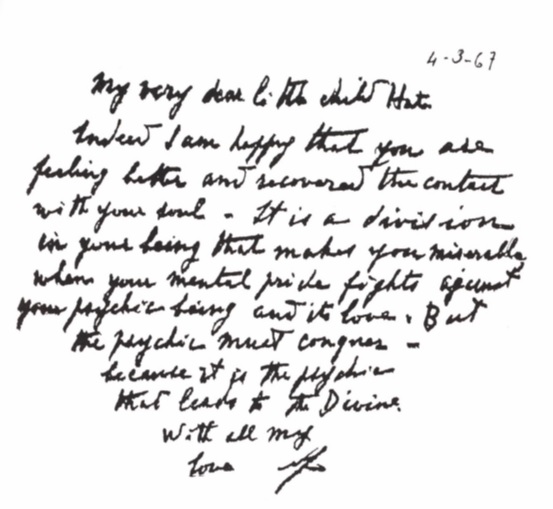 4-3-67
My very dear little child Huta
Indeed I am happy that you are
feeling better and recovered the contact
with your soul - It is a division
in your being that makes you miserable,
when your mental pride fights against
your psychic being and its love. But
the psychic must conquer -
because it is the psychic
that leads to the Divine.
With all my
love